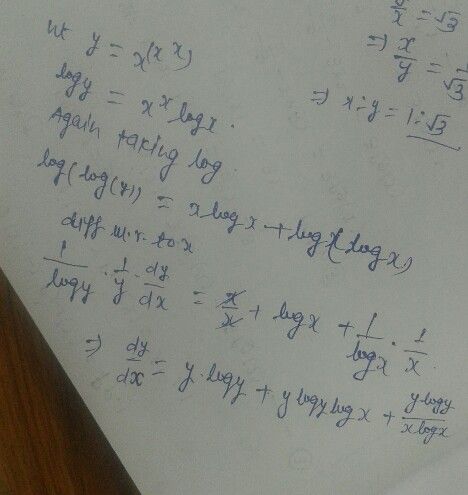 let y = x^(x^x)
log y = x^x log x.
Again taking log
log(log(y)) = x log x + log(log x)
diff w.r. to x
1/log y · 1/y · dy/dx = x/x + log x + 1/log x · 1/x.
⇒ dy/dx = y·log y + y log y log x + y log y/x log x
y/x = √3
⇒ x/y = 1/√3
⇒ x:y = 1:√3